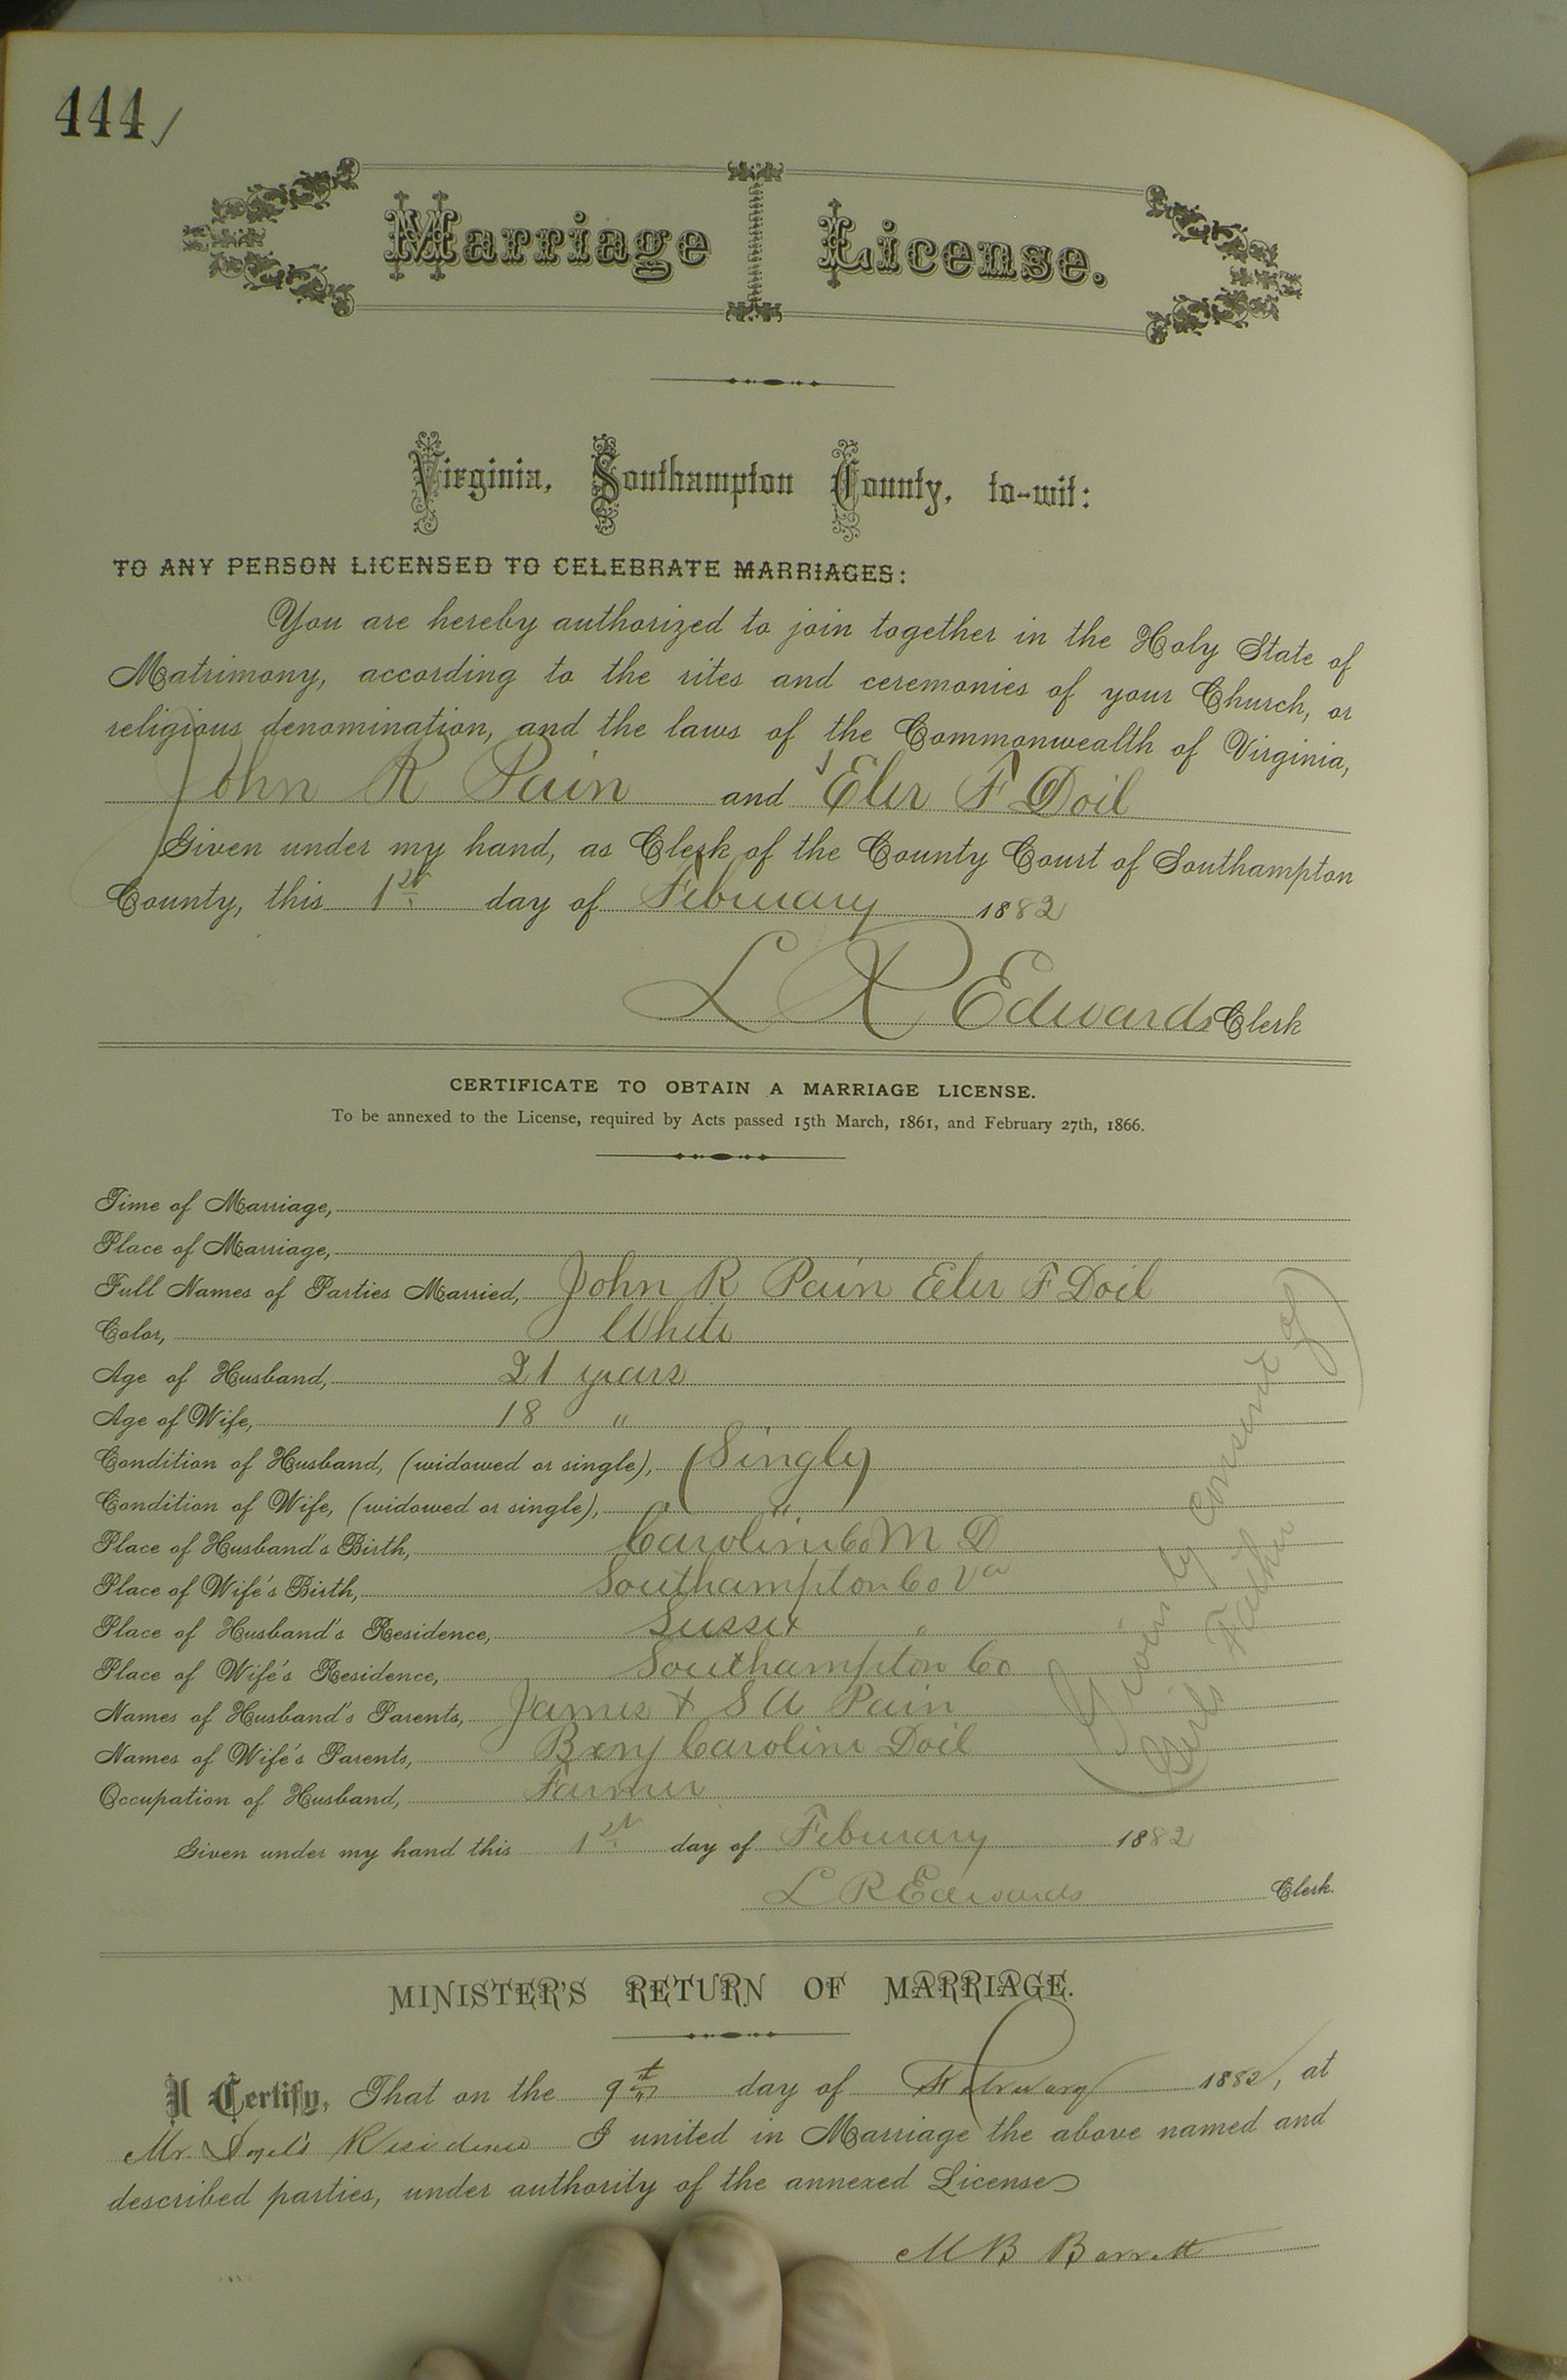 444
Marriage License.
Virginia, Southampton County, to-wit:
TO ANY PERSON LICENSED TO CELEBRATE MARRIAGES:
You are hereby authorized to join together in the Holy State of
Matrimony, according to the rites and ceremonies of your Church, or
religious denomination, and the laws of the Commonwealth of Virginia,
John R Pain and Eler F Doil
Given under my hand, as Clerk of the County Court of Southampton
County, this 1st day of February 1882
L R Edwards Clerk
CERTIFICATE TO OBTAIN A MARRIAGE LICENSE.
To be annexed to the License, required by Acts passed 15th March, 1861, and February 27th, 1866.
Time of Marriage,
Place of Marriage,
Full Names of Parties Married, John R Pain Eler F Doil
Color, White
Age of Husband, 21 years
Age of Wife, 18 "
Condition of Husband, (widowed or single), (Single)
Condition of Wife, (widowed or single), "
Place of Husband's Birth, Caroline Co M D
Place of Wife's Birth, Southampton Co Va
Place of Husband's Residence, Sussex "
Place of Wife's Residence, Southampton Co
Names of Husband's Parents, James & S A Pain
Names of Wife's Parents, Benj Caroline Doil
Occupation of Husband, Farmer
Given by consent of
Girls Father
Given under my hand this 1st day of February 1882
L R Edwards Clerk.
MINISTER'S RETURN OF MARRIAGE.
I Certify, That on the 9th day of February 1882, at
Mr. Doyel's Residence I united in Marriage the above named and
described parties, under authority of the annexed License
M B Barrett